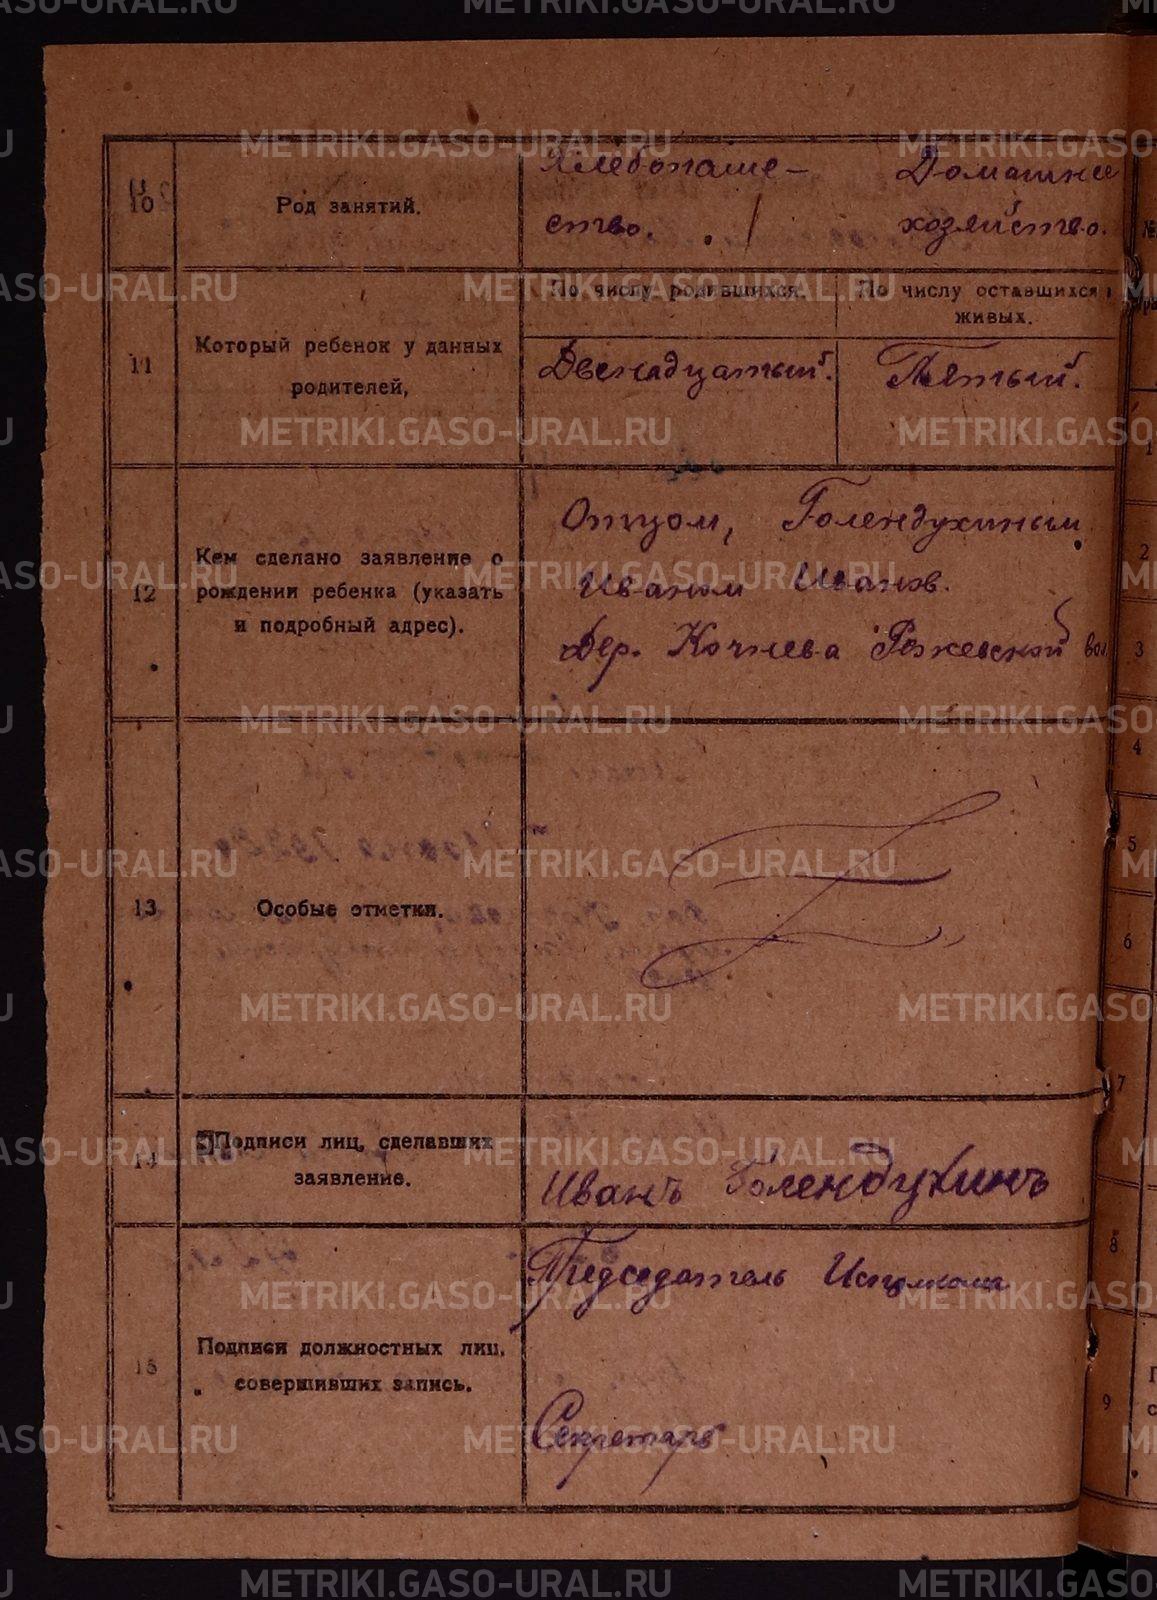 METRIKI.GASO-URAL.RU
10
Род занятий.
Хлебопаше-
ство.
Домашнее
хозяйство.
11
Который ребенок у данных
родителей,
По числу родившихся.
По числу оставшихся
живых.
Двенадцатый.
Пятый.
12
Кем сделано заявление о
рождении ребенка (указать
и подробный адрес).
Отцом, Голендухиным
Иваном Иванов.
Дер. Кочнева Режевской вол
13
Особые отметки.
14
Подписи лиц, сделавших
заявление.
Иванъ Голендухинъ
15
Подписи должностных лиц,
совершивших запись.
Председатель Исполкома
Секретарь
1
2
3
4
5
6
7
8
9